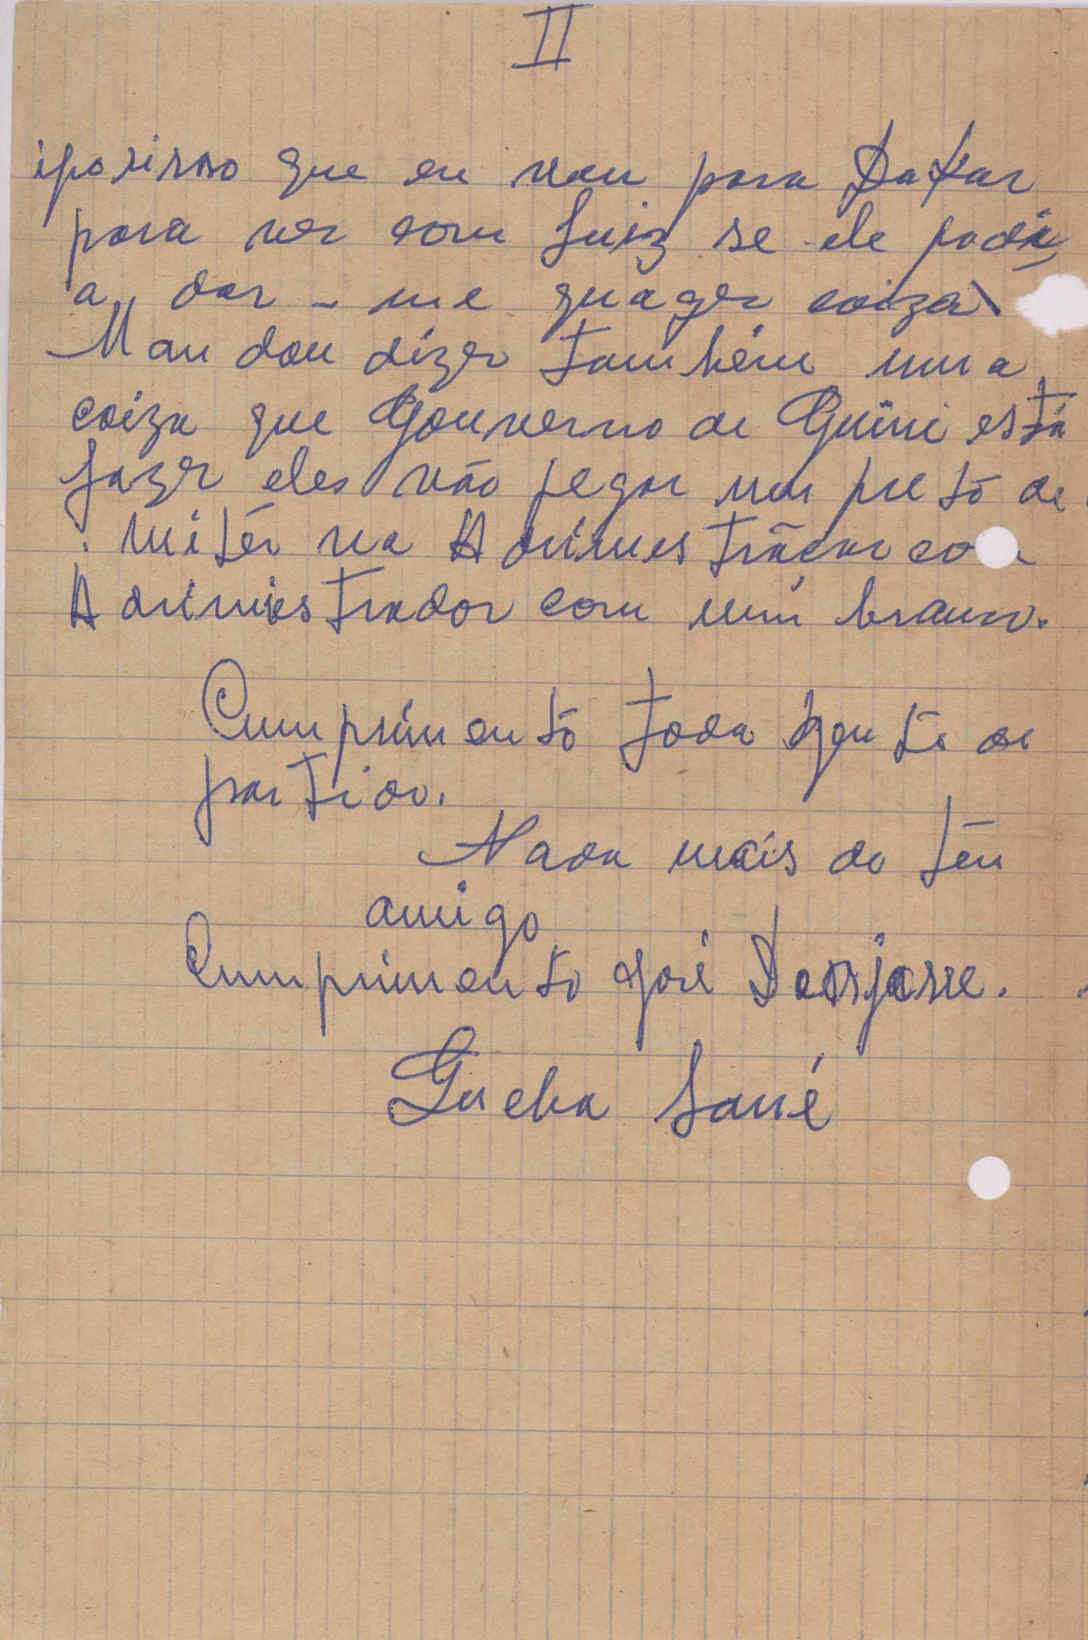 II
iporisso que eu vou para Dakar
para ver com Luiz se ele podia
a dar-me quager coiza
Mandou dizer também uma
coiza que Gouverno de Guine está
fazer eles vão pegar um preto de
miter na Adrimestrácar com
Adrimiestrador com um branco.
Cumprimento toda gente de
partido.
Nada mais do teu
amigo
Cumprimento José
Gueba Sané